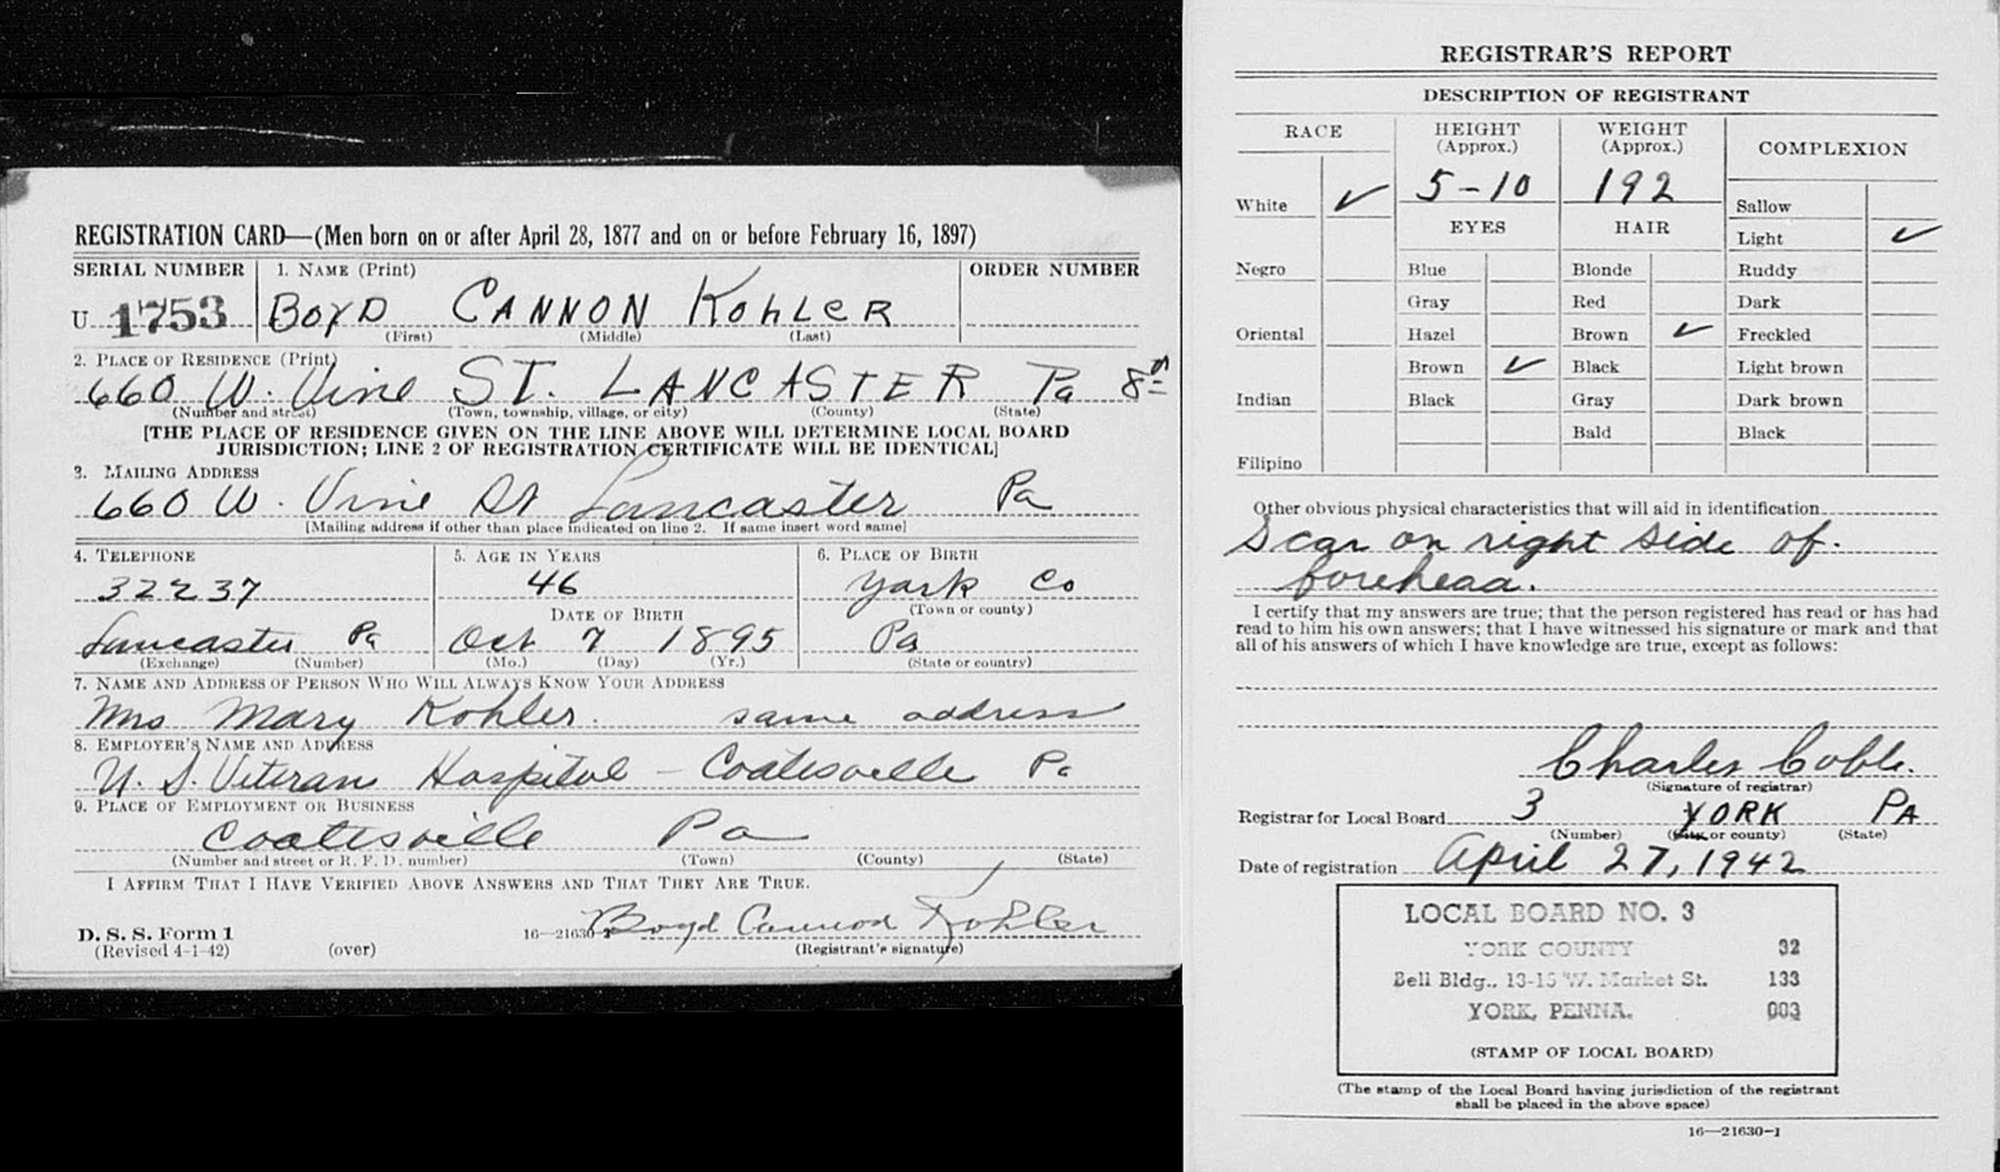 REGISTRATION CARD—(Men born on or after April 28, 1877 and on or before February 16, 1897)
SERIAL NUMBER 1. NAME (Print) ORDER NUMBER
U 1753 BOYD CANNON KOHLER
(First) (Middle) (Last)
2. PLACE OF RESIDENCE (Print)
660 W. Vine ST. LANCASTER Pa
(Number and street) (Town, township, village, or city) (County) (State)
[THE PLACE OF RESIDENCE GIVEN ON THE LINE ABOVE WILL DETERMINE LOCAL BOARD
JURISDICTION; LINE 2 OF REGISTRATION CERTIFICATE WILL BE IDENTICAL]
3. MAILING ADDRESS
660 W. Vine St Lancaster Pa
[Mailing address if other than place indicated on line 2. If same insert word same]
4. TELEPHONE 5. AGE IN YEARS 6. PLACE OF BIRTH
32237 46 York Co
DATE OF BIRTH (Town or county)
Lancaster Pa Oct 7 1895 Pa
(Exchange) (Number) (Mo.) (Day) (Yr.) (State or country)
7. NAME AND ADDRESS OF PERSON WHO WILL ALWAYS KNOW YOUR ADDRESS
Mrs Mary Kohler. same address
8. EMPLOYER'S NAME AND ADDRESS
U. S. Veteran Hospital – Coatesville Pa
9. PLACE OF EMPLOYMENT OR BUSINESS
Coatesville Pa
(Number and street or R. F. D. number) (Town) (County) (State)
I AFFIRM THAT I HAVE VERIFIED ABOVE ANSWERS AND THAT THEY ARE TRUE.
D. S. S. Form 1 16—21630-1 Boyd Cannon Kohler
(Revised 4-1-42) (over) (Registrant's signature)
REGISTRAR'S REPORT
DESCRIPTION OF REGISTRANT
RACE HEIGHT (Approx.) WEIGHT (Approx.) COMPLEXION
White ✓ 5-10 192 Sallow
EYES HAIR Light ✓
Negro Blue Blonde Ruddy
Gray Red Dark
Oriental Hazel Brown ✓ Freckled
Brown ✓ Black Light brown
Indian Black Gray Dark brown
Bald Black
Filipino
Other obvious physical characteristics that will aid in identification
Scar on right side of.
forehead.
I certify that my answers are true; that the person registered has read or has had
read to him his own answers; that I have witnessed his signature or mark and that
all of his answers of which I have knowledge are true, except as follows:
Charles Coble.
(Signature of registrar)
Registrar for Local Board 3 YORK PA
(Number) (City or county) (State)
Date of registration April 27, 1942
LOCAL BOARD NO. 3
YORK COUNTY 32
Bell Bldg., 13-15 W. Market St. 133
YORK, PENNA. 003
(STAMP OF LOCAL BOARD)
(The stamp of the Local Board having jurisdiction of the registrant
shall be placed in the above space)
16—21630-1